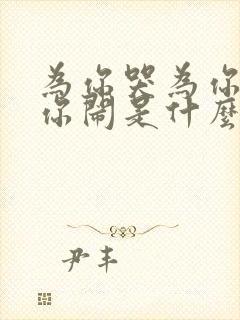 為你哭為你
你鬧是什麼
尹丰